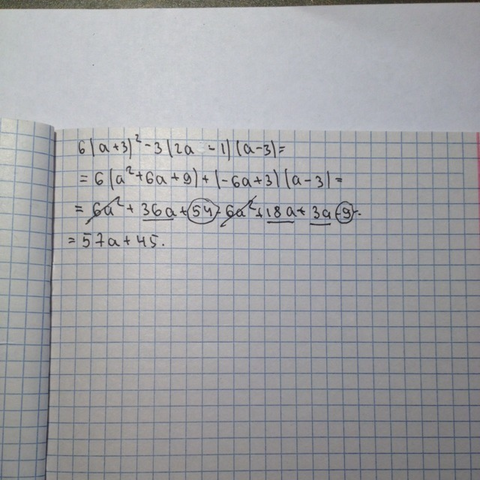 6(a+3)²-3(2a-1)(a-3)=
=6(a²+6a+9)+(-6a+3)(a-3)=
=6a²+36a+54-6a²+18a+3a-9=
=57a+45.